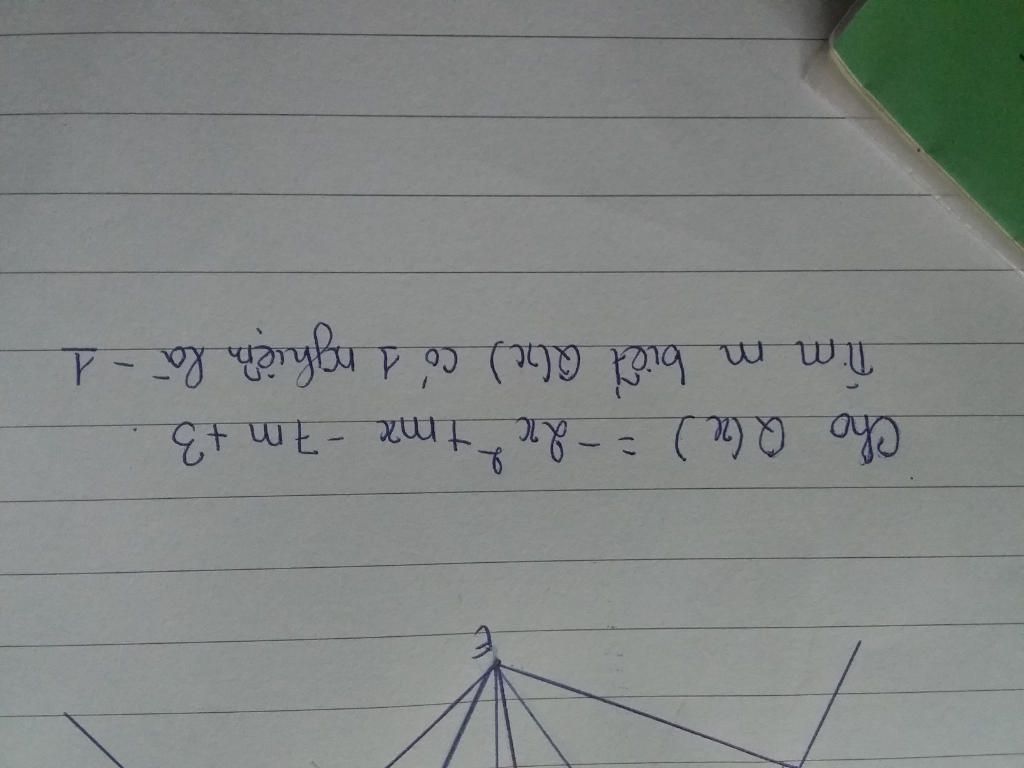 Cho Q(x) = -2x² + mx - 7m + 3
Tìm m biết Q(x) có 1 nghiệm là -1
E